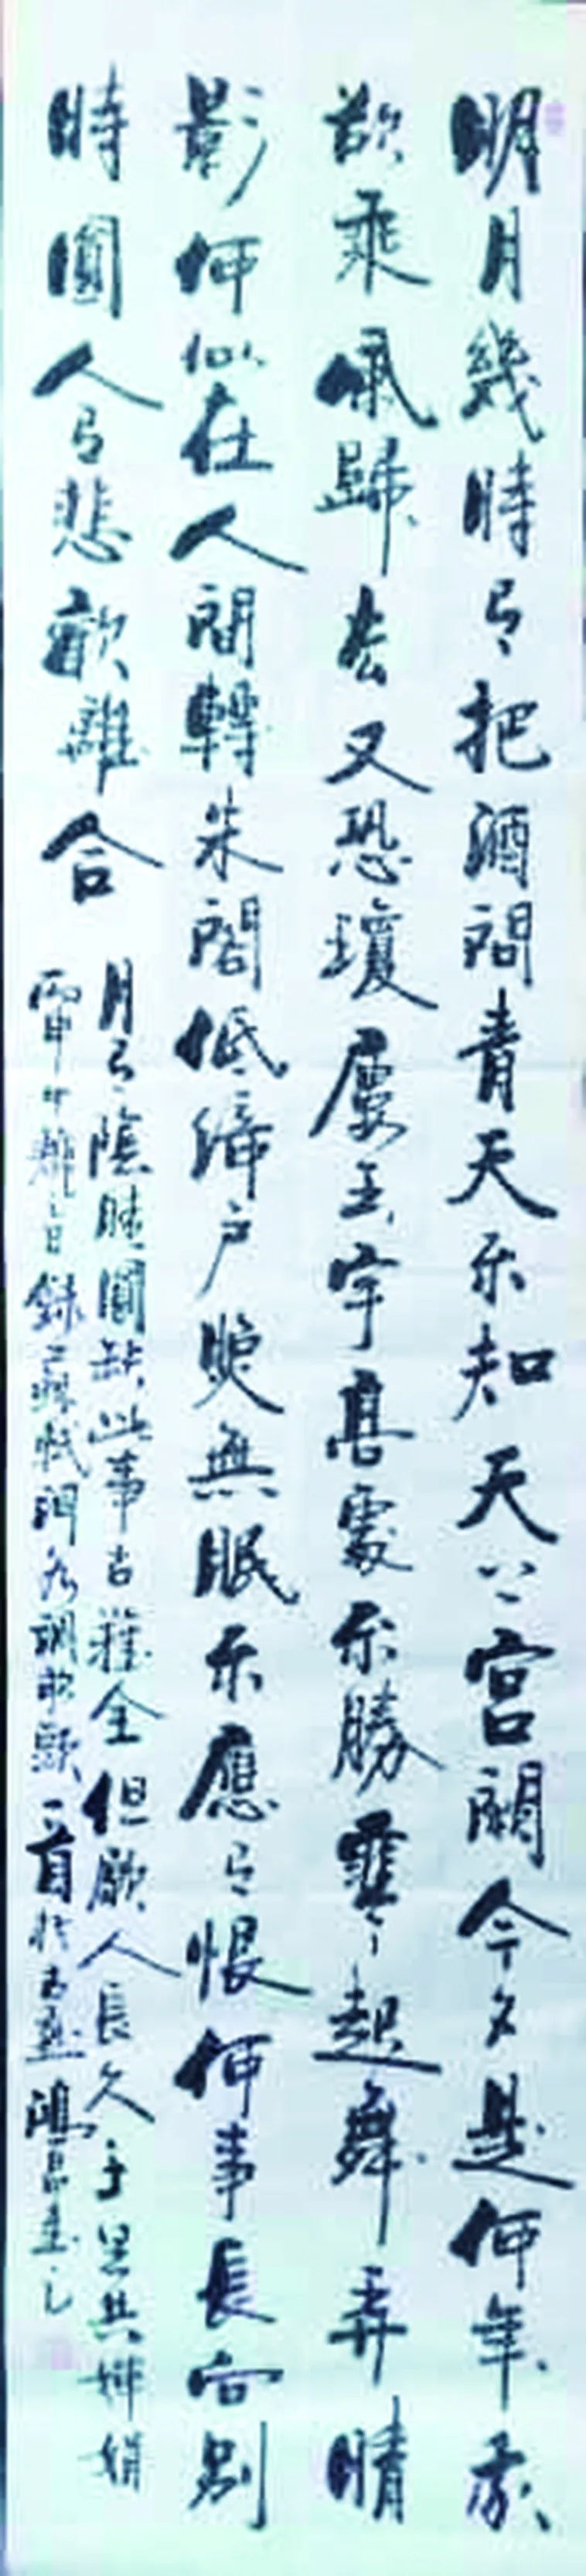 明月幾時有把酒問青天不知天上宮闕今夕是何年我
欲乘風歸去又恐瓊樓玉宇高處不勝寒起舞弄晴
影何似在人間轉朱閣低綺戶照無眠不應有恨何事長向別
時圓人有悲歡離合
月有陰晴圓缺此事古難全但願人長久千里共嬋娟
丙申 日錄蘇軾詞水調歌頭一首於